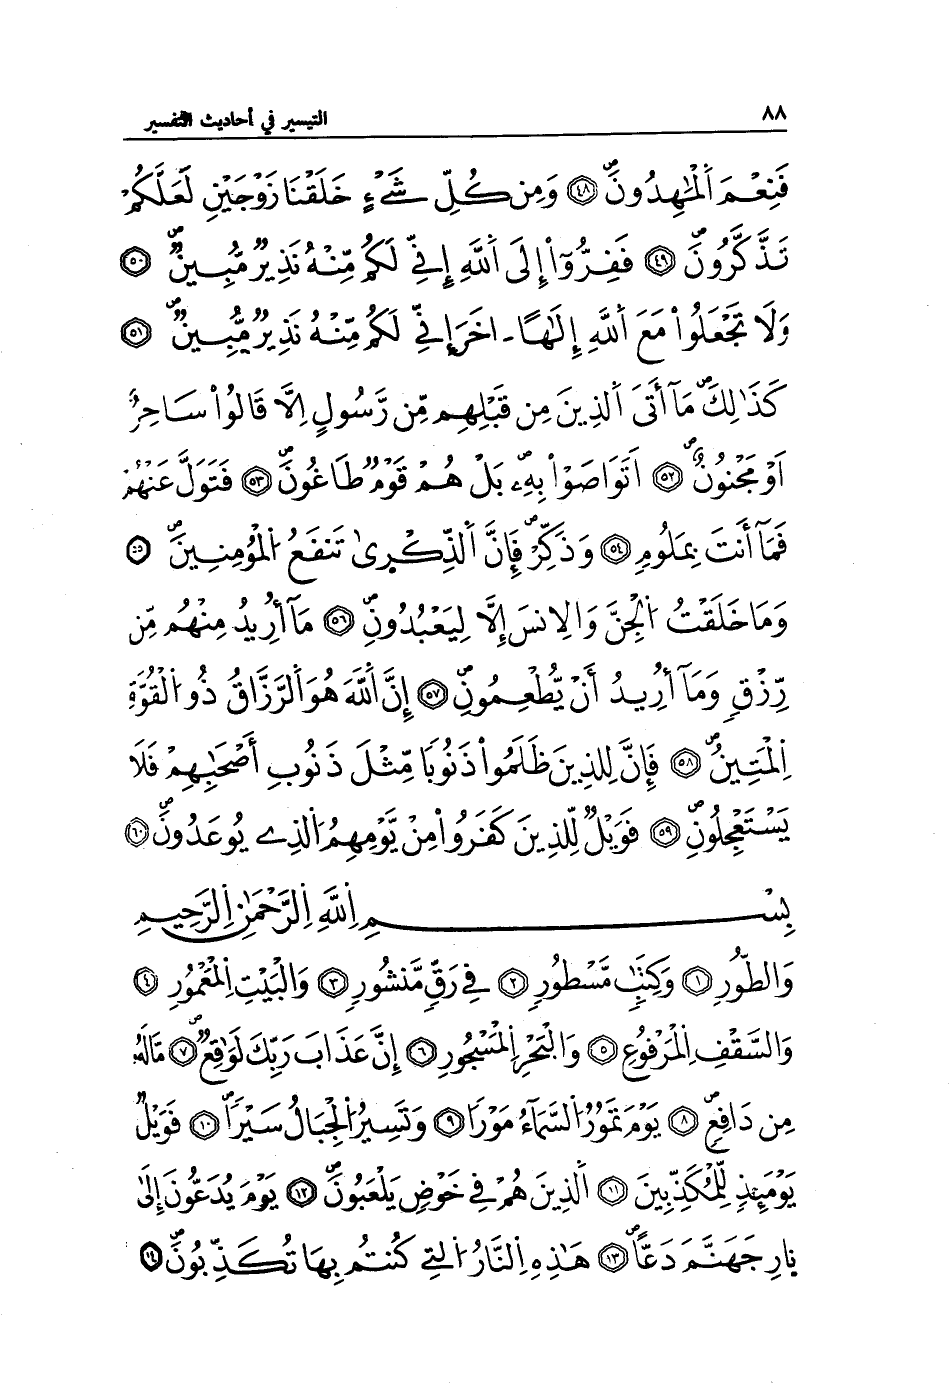 ٨٨ التيسير في أحاديث التفسير
فَنِعْمَ اَلْمَٰهِدُونَۖ ٤٨ وَمِن كُلِّ شَيْءٍ خَلَقْنَا زَوْجَيْنِ لَعَلَّكُمْ
تَذَّكَّرُونَۖ ٤٩ فَفِرُّوٓاْ إِلَى اَللَّهِ إِنِّے لَكُم مِّنْهُ نَذِيرٞ مُّبِينٞۖ ٥٠
وَلَا تَجْعَلُواْ مَعَ اَللَّهِ إِلَٰهًا ـ اخَرَ إِنِّے لَكُم مِّنْهُ نَذِيرٞ مُّبِينٞۖ ٥١
كَذَٰلِكَۖ مَآ أَتَى اَلذِينَ مِن قَبْلِهِم مِّن رَّسُولٍ اِلَّا قَالُواْ سَاحِرٌ
اَوْ مَجْنُونٌۖ ٥٢ اَتَوَاصَوْاْ بِهِۦۖ بَلْ هُمْ قَوْمٞ طَاغُونَۖ ٥٣ فَتَوَلَّ عَنْهُمْ
فَمَآ أَنتَ بِمَلُومٖ ٥٤ وَذَكِّرْۖ فَإِنَّ اَلذِّكْر۪ىٰ تَنفَعُ اُلْمُومِنِينَۖ ٥٥
وَمَا خَلَقْتُ اُلْجِنَّ وَالِانسَ إِلَّا لِيَعْبُدُونِۖ ٥٦ مَآ أُرِيدُ مِنْهُم مِّن
رِّزْقٖ وَمَآ أُرِيدُ أَنْ يُّطْعِمُونِۖ ٥٧ إِنَّ اَللَّهَ هُوَ اَلرَّزَّاقُ ذُو اُلْقُوَّةِ
اِلْمَتِينُۖ ٥٨ فَإِنَّ لِلذِينَ ظَلَمُواْ ذَنُوبٗا مِّثْلَ ذَنُوبِ أَصْحَٰبِهِمْ فَلَا
يَسْتَعْجِلُونِۖ ٥٩ فَوَيْلٞ لِّلذِينَ كَفَرُواْ مِنْ يَّوْمِهِمُ اُلذِے يُوعَدُونَۖ ٦٠
بِسْمِ اِللَّهِ اِلرَّحْمَٰنِ اِلرَّحِيمِ
وَالطُّورِ ١ وَكِتَٰبٖ مَّسْطُورٖ ٢ فِے رَقّٖ مَّنشُورٖ ٣ وَالْبَيْتِ اِلْمَعْمُورِ ٤
وَالسَّقْفِ اِلْمَرْفُوعِ ٥ وَالْبَحْرِ اِلْمَسْجُورِ ٦ إِنَّ عَذَابَ رَبِّكَ لَوَٰقِعٞۖ ٧ مَّا لَهُۥ
مِن دَافِعٖۖ ٨ يَوْمَ تَمُورُ اُلسَّمَآءُ مَوْرٗا ٩ وَتَسِيرُ اُلْجِبَالُ سَيْرٗاۖ ١٠ فَوَيْلٞ
يَوْمَئِذٖ لِّلْمُكَذِّبِينَ ١١ اَلذِينَ هُمْ فِے خَوْضٖ يَلْعَبُونَۖ ١٢ يَوْمَ يُدَعُّونَ إِلَىٰ
نِارِ جَهَنَّمَ دَعّاًۖ ١٣ هَٰذِهِ اِلنَّارُ اُلتِے كُنتُم بِهَا تُكَذِّبُونَۖ ١٤